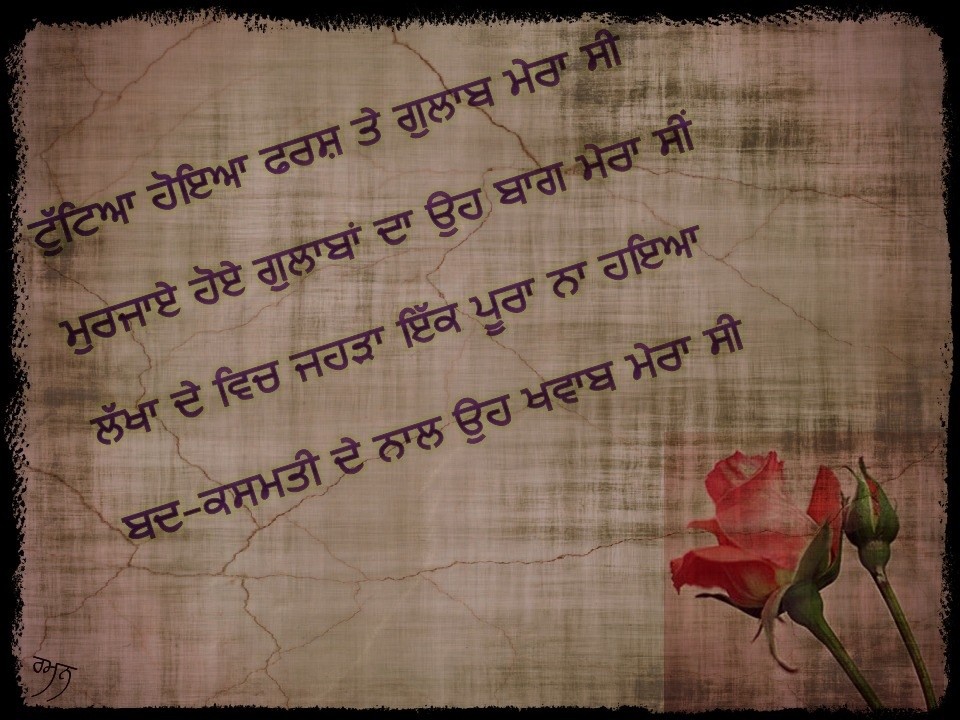 ਟੁੱਟਿਆ ਹੋਇਆ ਫਰਸ਼ ਤੇ ਗੁਲਾਬ ਮੇਰਾ ਸੀ
ਮੁਰਜਾਏ ਹੋਏ ਗੁਲਾਬਾਂ ਦਾ ਉਹ ਬਾਗ ਮੇਰਾ ਸੀਂ
ਲੱਖਾ ਦੇ ਵਿਚ ਜਹੜਾ ਇੱਕ ਪੂਰਾ ਨਾ ਹਇਆ
ਬਦ-ਕਸਮਤੀ ਦੇ ਨਾਲ ਉਹ ਖਵਾਬ ਮੇਰਾ ਸੀ
ਰਮਨ